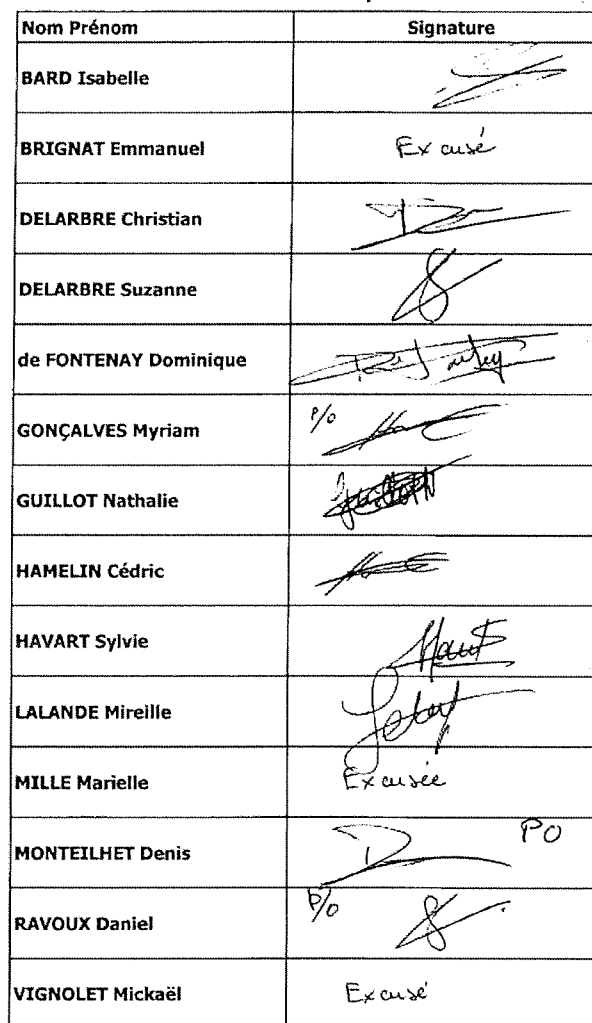 Nom Prénom Signature
BARD Isabelle
BRIGNAT Emmanuel Excusé
DELARBRE Christian
DELARBRE Suzanne
de FONTENAY Dominique
GONÇALVES Myriam P/o
GUILLOT Nathalie
HAMELIN Cédric
HAVART Sylvie
LALANDE Mireille
MILLE Marielle Excusée
MONTEILHET Denis PO
RAVOUX Daniel P/o
VIGNOLET Mickaël Excusé